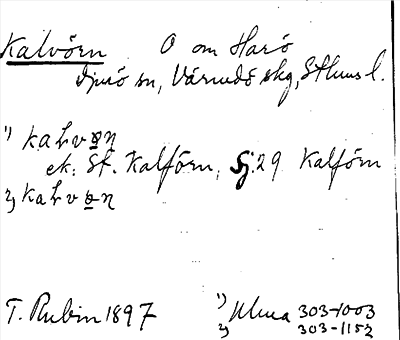 Kalvörn O om Harö
Djurö sn, Värmdö skg, Sthms l.
1) kaLvɵn
ek. St. Kalförn, Sj. 29 Kalförn
2) kaLvɵn
T. Rubin 1897 1) Ulma 303-1003
2) 303-1152